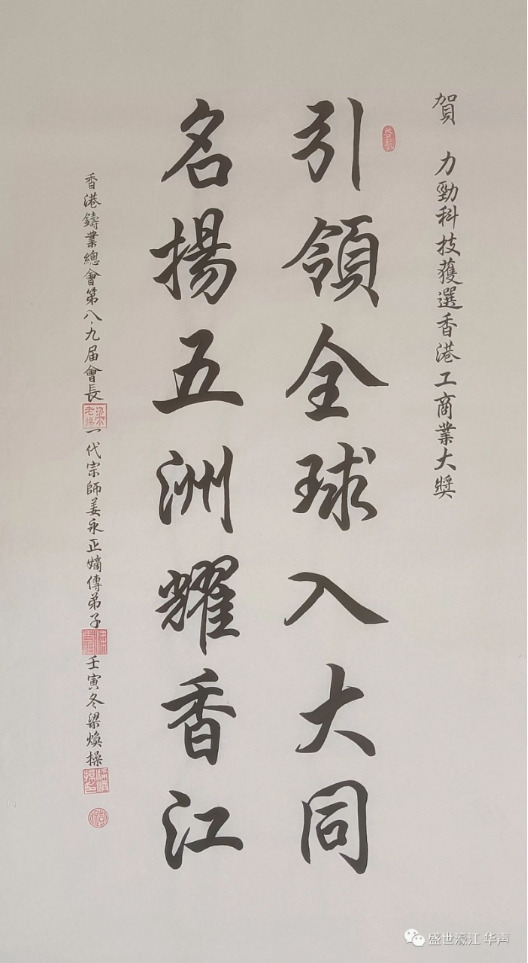 賀 力勁科技獲選香港工商業大獎
引領全球入大同
名揚五洲耀香江
香港鑄業總會第八、九届會長 一代宗師姜永正嫡傳弟子 壬寅冬梁煥操
盛世濠江 华声